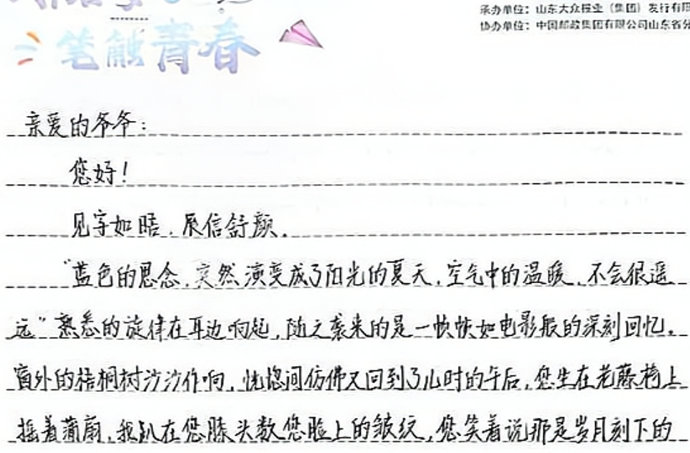 承办单位：山东大众报业（集团）发行有限
协办单位：中国邮政集团有限公司山东省分
笔触青春
亲爱的爷爷：
您好！
见字如晤，展信舒颜。
“蓝色的思念，突然演变成了阳光的夏天，空气中的温暖，不会很遥
远”熟悉的旋律在耳边响起，随之袭来的是一帧帧如电影般的深刻回忆。
窗外的梧桐树沙沙作响，恍惚间仿佛又回到了儿时的午后，您坐在老藤椅上
摇着蒲扇，我趴在您膝头数您脸上的皱纹，您笑着说那是岁月刻下的